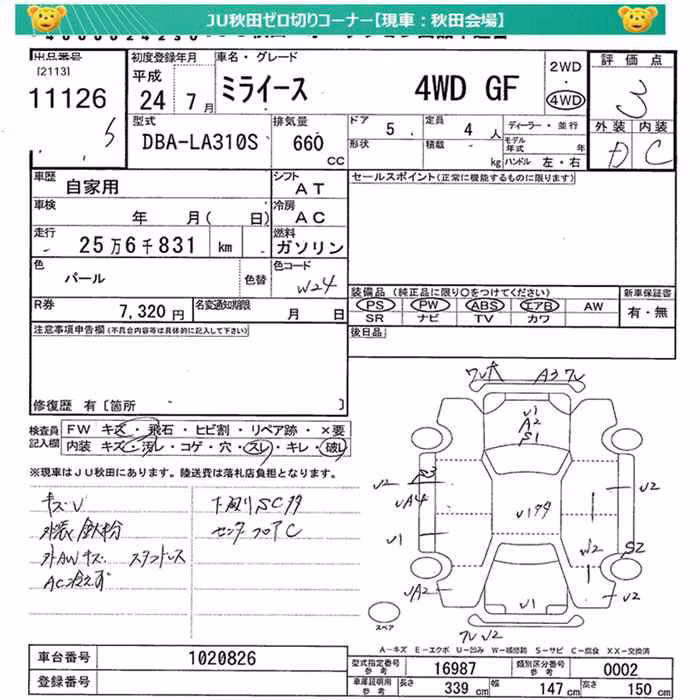 JU秋田ゼロ切りコーナー【現車：秋田会場】
出品番号
[2113]
11126
初度登録年月
平成
24年 7月
車名・グレード
ミライース 4WD GF
2WD
・
4WD
評価点
3
外装 内装
D C
型式
DBA-LA310S
排気量
660
CC
ドア 5
定員 4 人
ディーラー・並行
形状
積載 kg
モデル年式 年
ハンドル 左・右
車歴
自家用
シフト
AT
セールスポイント(正常に機能するものに限ります)
車検
年 月( 日)
冷房
AC
走行
25万6千831 km
燃料
ガソリン
色
パール
色替
色コード
W24
装備品 (純正品に限り○をつけてください)
新車保証書
PS PW ABS エアB AW
有・無
SR ナビ TV カワ
R券
7,320円
名変通知期限
月 日
後日品
注意事項申告欄(不具合内容等は具体的に記入して下さい)
修復歴 有 [箇所 ]
検査員
記入欄
FW キズ・飛石・ヒビ割・リペア跡・×要
内装 キズ・汚レ・コゲ・穴・スレ・キレ・破レ
※現車はJU秋田にあります。陸送費は落札店負担となります。
キズU
下廻りSC
外装鉄粉
センターフロアC
外AWキズ スタッドレス
AC冷えず
A3
U1
A2
S1
S3
U2
UA4
U1
UA2
U2
W2
S2
U2
U1
U2
スペア
A－キズ E－エクボ U－凹み W－補修跡 S－サビ C－腐食 XX－交換済
車台番号
1020826
登録番号
型式指定番号
参考
16987
類別区分番号
参考
0002
車庫証明用
参考
長さ 339 cm
幅 147 cm
高さ 150 cm